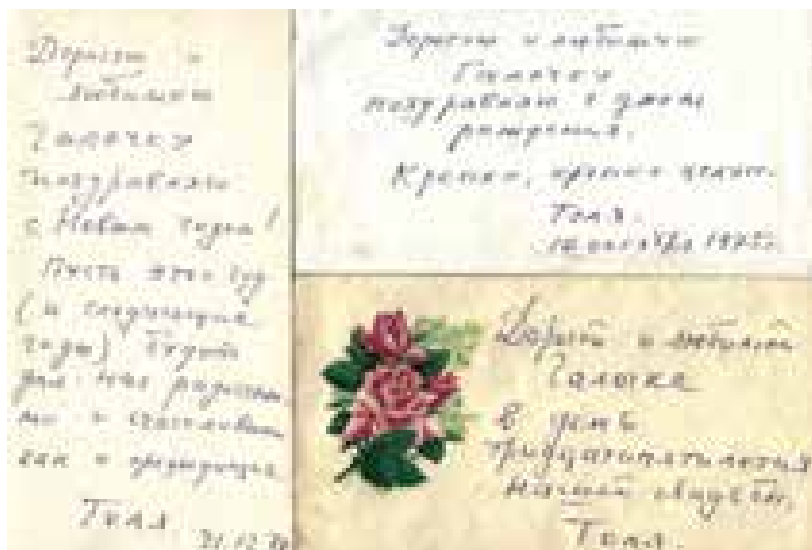 Дорогую и
любимую
Галочку
поздравляю
с Новым годом!
Пусть этот год
(и следующие
годы) будут
для нас радостны-
ми и счастливыми
как и предыдущие
Толя
31.12.
Дорогую и любимую
Галочку
поздравляю с днем
рождения.
Крепко, крепко целую.
Толя.
октября 1975г.
Дорогой и любимой
Галочке
в день
тридцатипятилетия
нашей свадьбы,
Толя.